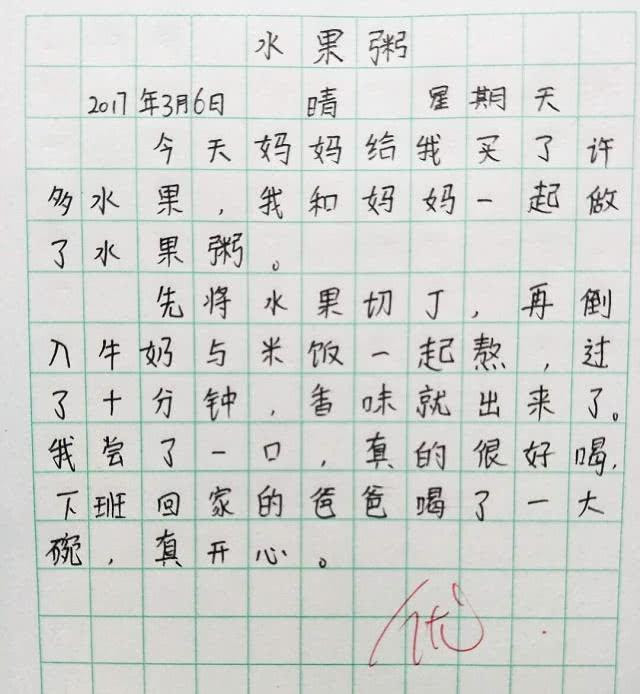 水果粥
2017年3月6日 晴 星期天
今天妈妈给我买了许
多水果，我和妈妈一起做
了水果粥。
先将水果切丁，再倒
入牛奶与米饭一起熬，过
了十分钟，香味就出来了。
我尝了一口，真的很好喝，
下班回家的爸爸喝了一大
碗，真开心。
优